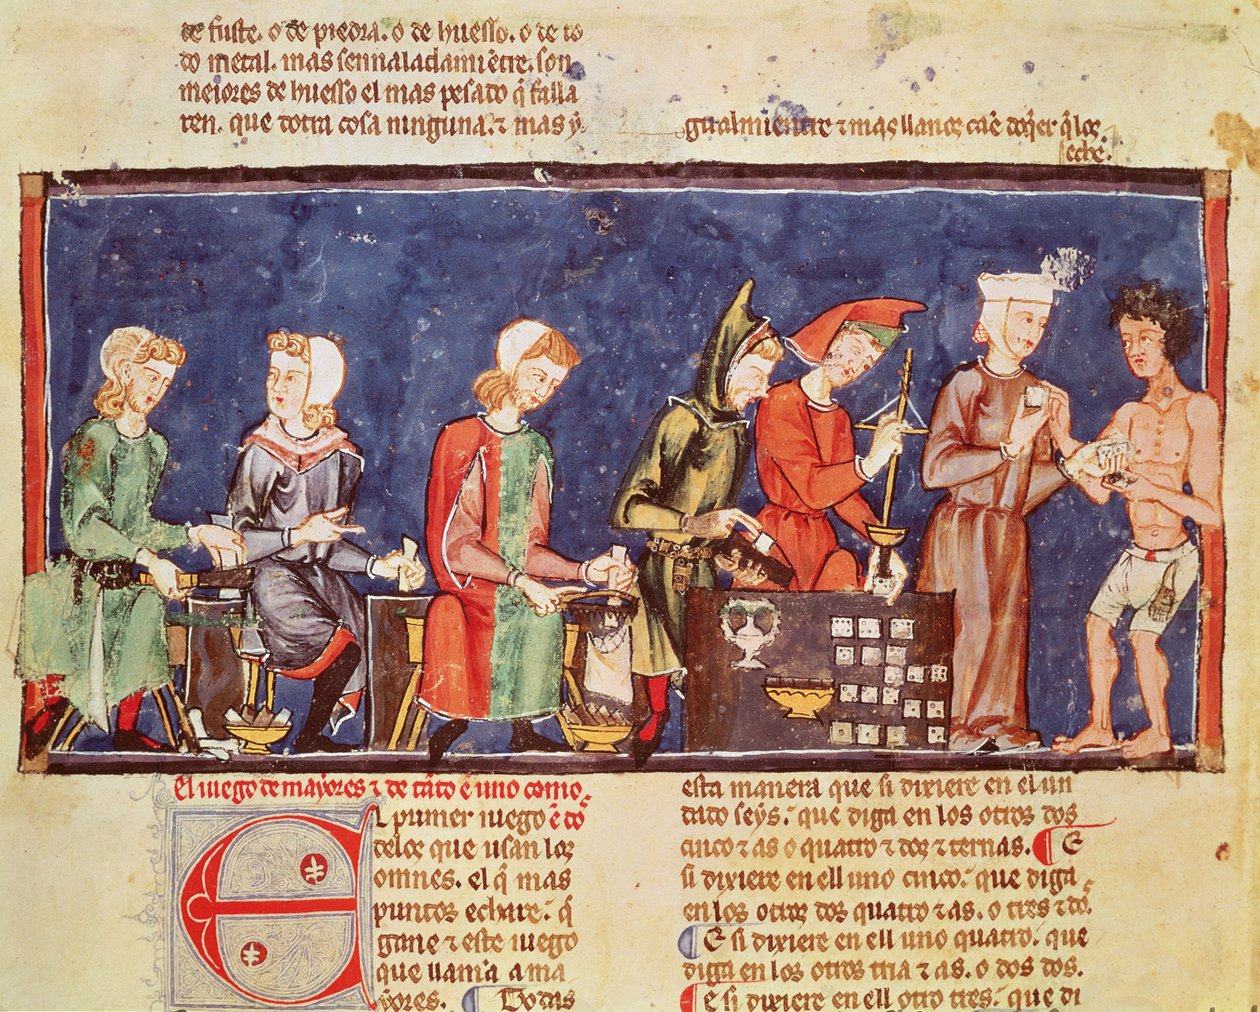 de fuste. o de piedra. o de huesso. o de to
do metal. mas sennaladamiẽtre. son
meiores de huesso el mas pesado q̃ falla
ren. que dotra cosa ninguna. ⁊ mas ẏ
gualmientre ⁊ mas llanos caẽ doq̃er q̃ los
echẽ.
El iuego de mayores ⁊ de tãto ẽ uno como
dos.
El primer iuego ẽ
delos que usan los
omnes. el q̃ mas
puntos echare. q̃
gane ⁊ este iuego
que llamã a ma
yores. Todas
esta manera que si dixiere en el un
dado seys. que diga en los otros dos
cinco ⁊ as o quatro ⁊ dos ⁊ ternas. E
si dixiere en ell uno cinco. que diga
en los otros dos quatro ⁊ as. o tres ⁊ dos.
E si dixiere en ell uno quatro. que
diga en los otros tria ⁊ as. o dos dos.
E si dixiere en ell otro tres. que di